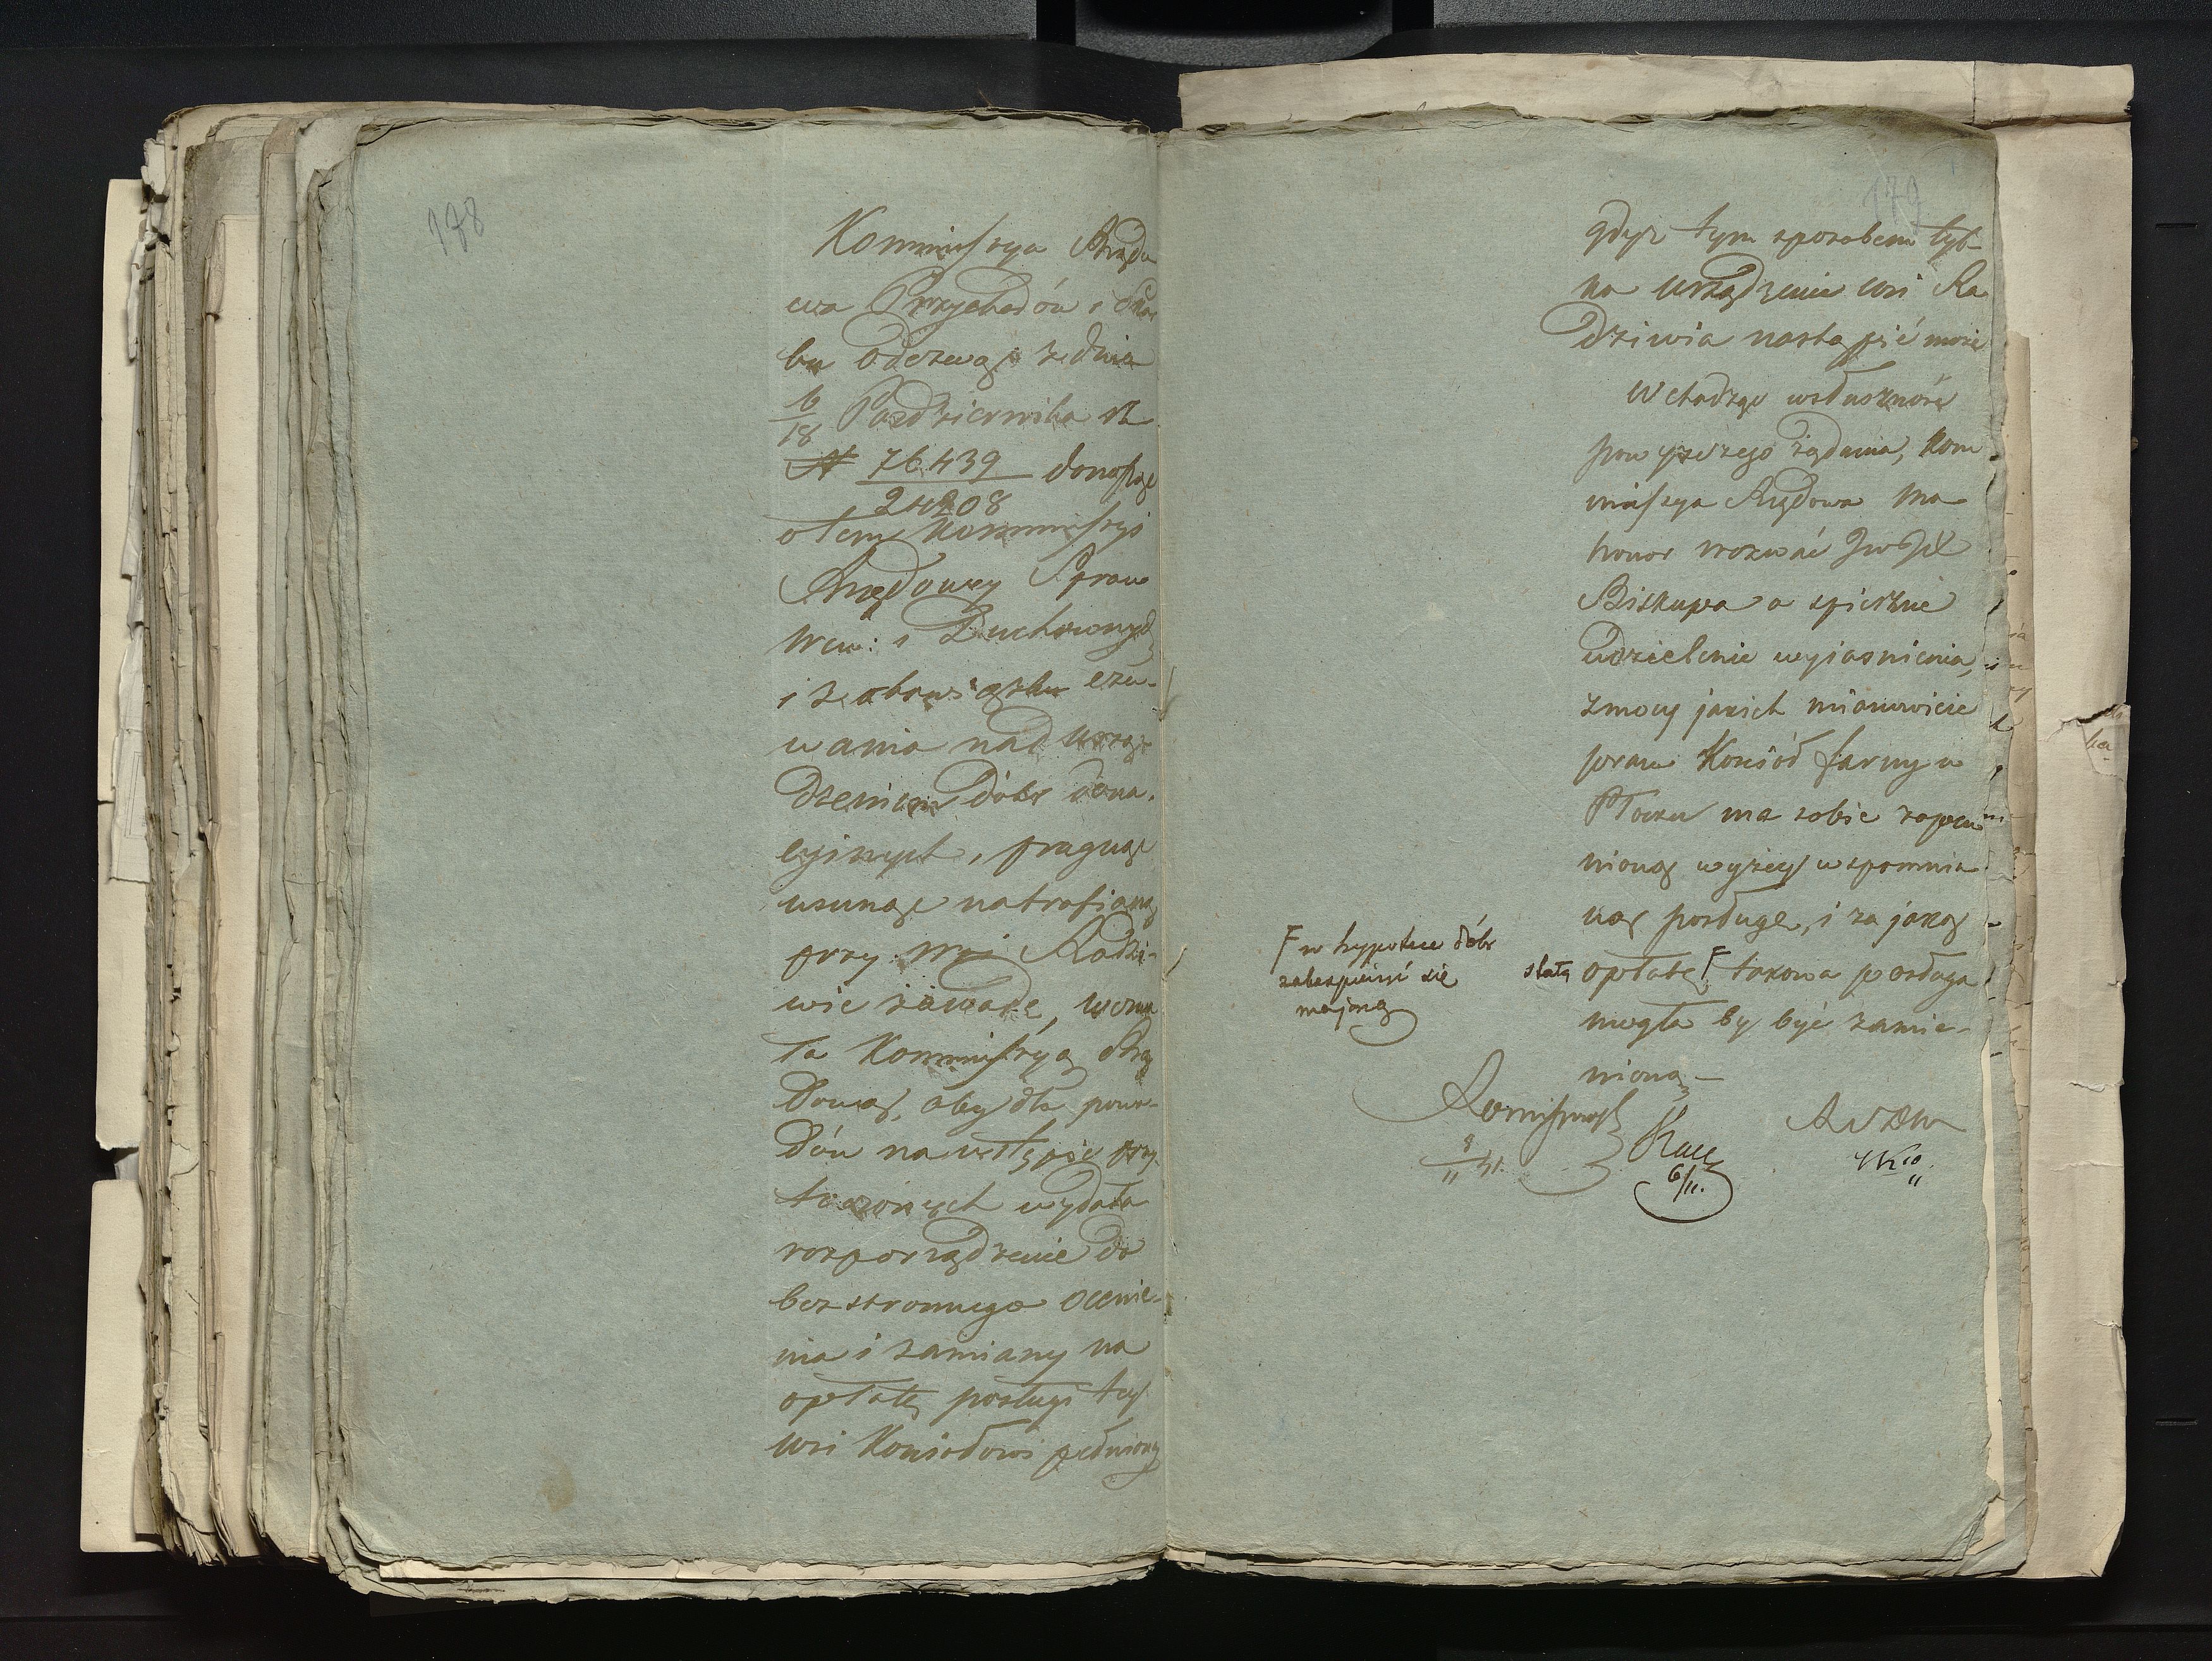 178
Kommissya Rządo
wa Przychodów i Skar
bu odezwą z dnia
6/18 Października rb
N 76439/24208 donosząc
o tem Kommissyi
Rządowey Spraw
Wew: i Duchownych
i z obowiązku czu-
wania nad urzą-
dzeniem dóbr dona-
cyinych, pragnąc
usunąć natrafianą
przy wsi Radzi-
wie zawadę, wezwa
ła Kommissyą Rzą
dową, aby dla powo-
dów na wstępie przy-
toczonych wydała
rozporządzenie do
bezstronnego ocenie-
nia i zamiany na
opłatę posługi tey
wsi Kościołowi pełnioney
179
gdyż tym sposobem tyl-
ko urządzenie wsi Ra
dziwia nastąpić może
Wchodząc w słuszność
powyższego żądania, Kom
missya Rządowa ma
honor wezwać JW JX
Biskupa o spieszne
udzielenie wyiasnienia,
z mocy jakich mianowicie
praw Kościół farny w
Płocku ma sobie zapew
nioną wyżey wspomnia
ną posługę, i za jaką
stałą opłatę F takowa posługa
mogła by być zamie-
nioną —
F w hypotece dóbr
zabespieczyć się
mającą
9/11 41.
6/11.
10/11